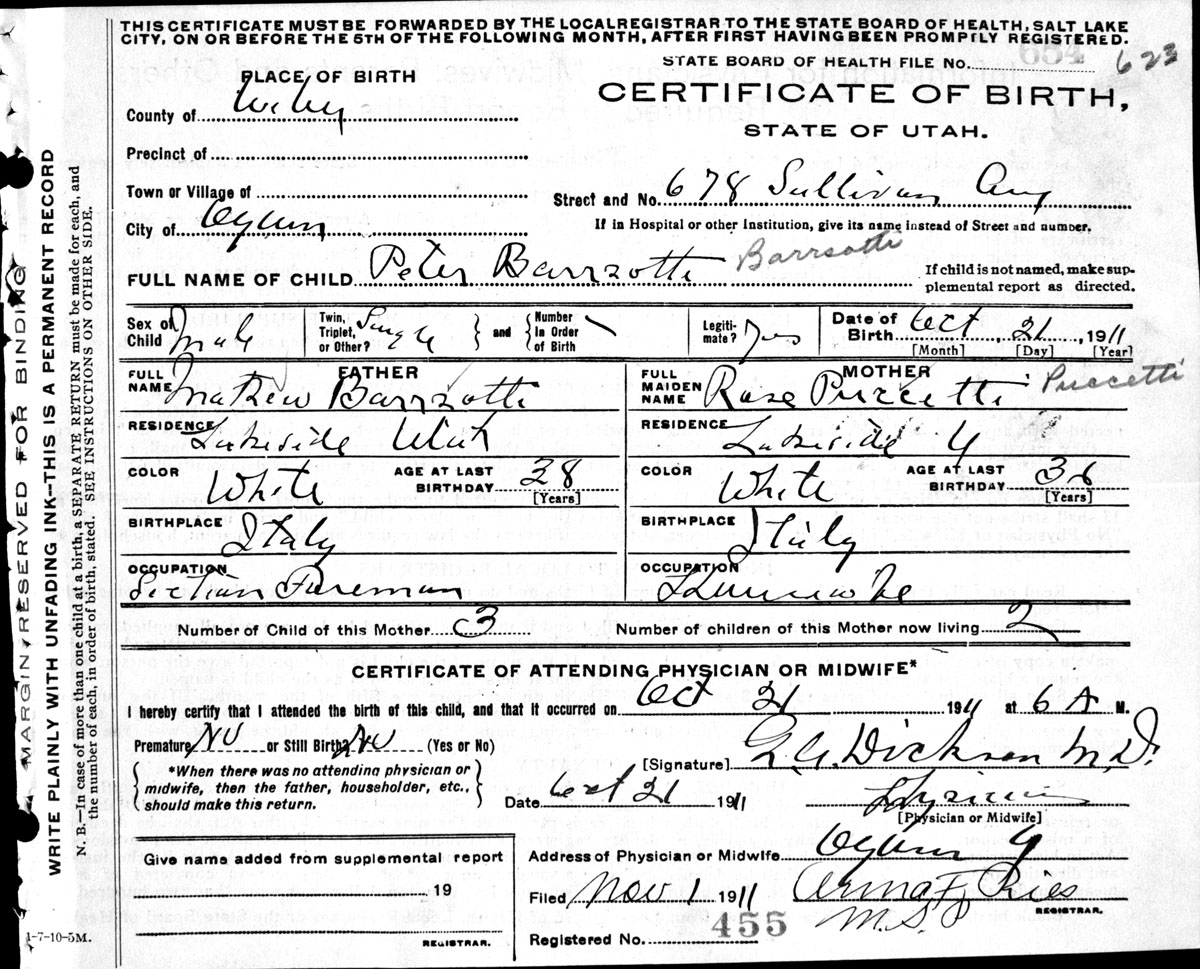 THIS CERTIFICATE MUST BE FORWARDED BY THE LOCAL REGISTRAR TO THE STATE BOARD OF HEALTH, SALT LAKE
CITY, ON OR BEFORE THE 5TH OF THE FOLLOWING MONTH, AFTER FIRST HAVING BEEN PROMPTLY REGISTERED.
STATE BOARD OF HEALTH FILE No. 654 623
PLACE OF BIRTH
CERTIFICATE OF BIRTH,
STATE OF UTAH.
County of Weber
Precinct of
Town or Village of
Street and No. 678 Sullivan Ave
City of Ogden
If in Hospital or other Institution, give its name instead of Street and number.
FULL NAME OF CHILD Peter Barrzotti Barrsotti
If child is not named, make sup-
plemental report as directed.
Sex of Child Male
Twin, Triplet, or Other? Single
and Number In Order of Birth
Legiti- mate? Yes
Date of Birth Oct, 21, 1911
[Month] [Day] [Year]
FATHER
FULL NAME Mathew Barrzotti
RESIDENCE Lakeside Utah
COLOR White
AGE AT LAST BIRTHDAY 38 [Years]
BIRTHPLACE Italy
OCCUPATION Section Foreman
MOTHER
FULL MAIDEN NAME Rose Purcetti Puccetti
RESIDENCE Lakeside U
COLOR White
AGE AT LAST BIRTHDAY 36 [Years]
BIRTHPLACE Italy
OCCUPATION Housewife
Number of Child of this Mother 3
Number of children of this Mother now living 2
CERTIFICATE OF ATTENDING PHYSICIAN OR MIDWIFE*
I hereby certify that I attended the birth of this child, and that it occurred on Oct 21 1911 at 6 A M.
Premature No or Still Birth? No (Yes or No)
*When there was no attending physician or
midwife, then the father, householder, etc.,
should make this return.
[Signature] Dickson M.D.
Date Oct 21 1911
Physician
[Physician or Midwife]
Give name added from supplemental report
19
REGISTRAR.
Address of Physician or Midwife Ogden U
Filed Nov 1 1911 F. Ries
REGISTRAR.
Registered No. 455
MARGIN RESERVED FOR BINDING
WRITE PLAINLY WITH UNFADING INK—THIS IS A PERMANENT RECORD
N. B.—In case of more than one child at a birth, a SEPARATE RETURN must be made for each, and
the number of each, in order of birth, stated. SEE INSTRUCTIONS OTHER SIDE.
1-7-10-5M.